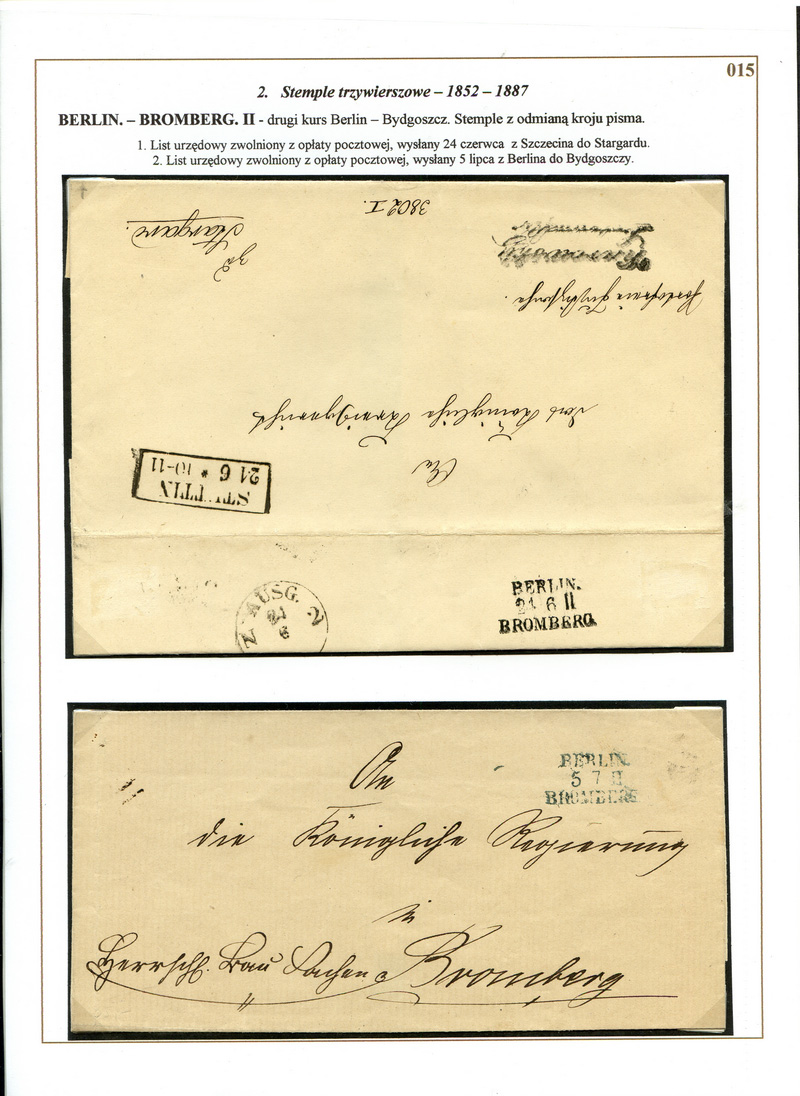 015
2. Stemple trzywierszowe – 1852 – 1887
BERLIN. – BROMBERG. II - drugi kurs Berlin – Bydgoszcz. Stemple z odmianą kroju pisma.
1. List urzędowy zwolniony z opłaty pocztowej, wysłany 24 czerwca z Szczecina do Stargardu.
2. List urzędowy zwolniony z opłaty pocztowej, wysłany 5 lipca z Berlina do Bydgoszczy.
3802 I.
Stargard.
zu
An
das Königliche Kreisgericht
STETTIN
24 6 * 10-11
AUSG.
24
6
N 2
BERLIN.
24 6 II
BROMBERG.
BERLIN.
5 7 II
BROMBERG
An
die Königliche Regierung
in
Herrschl. Bau Sachen Bromberg